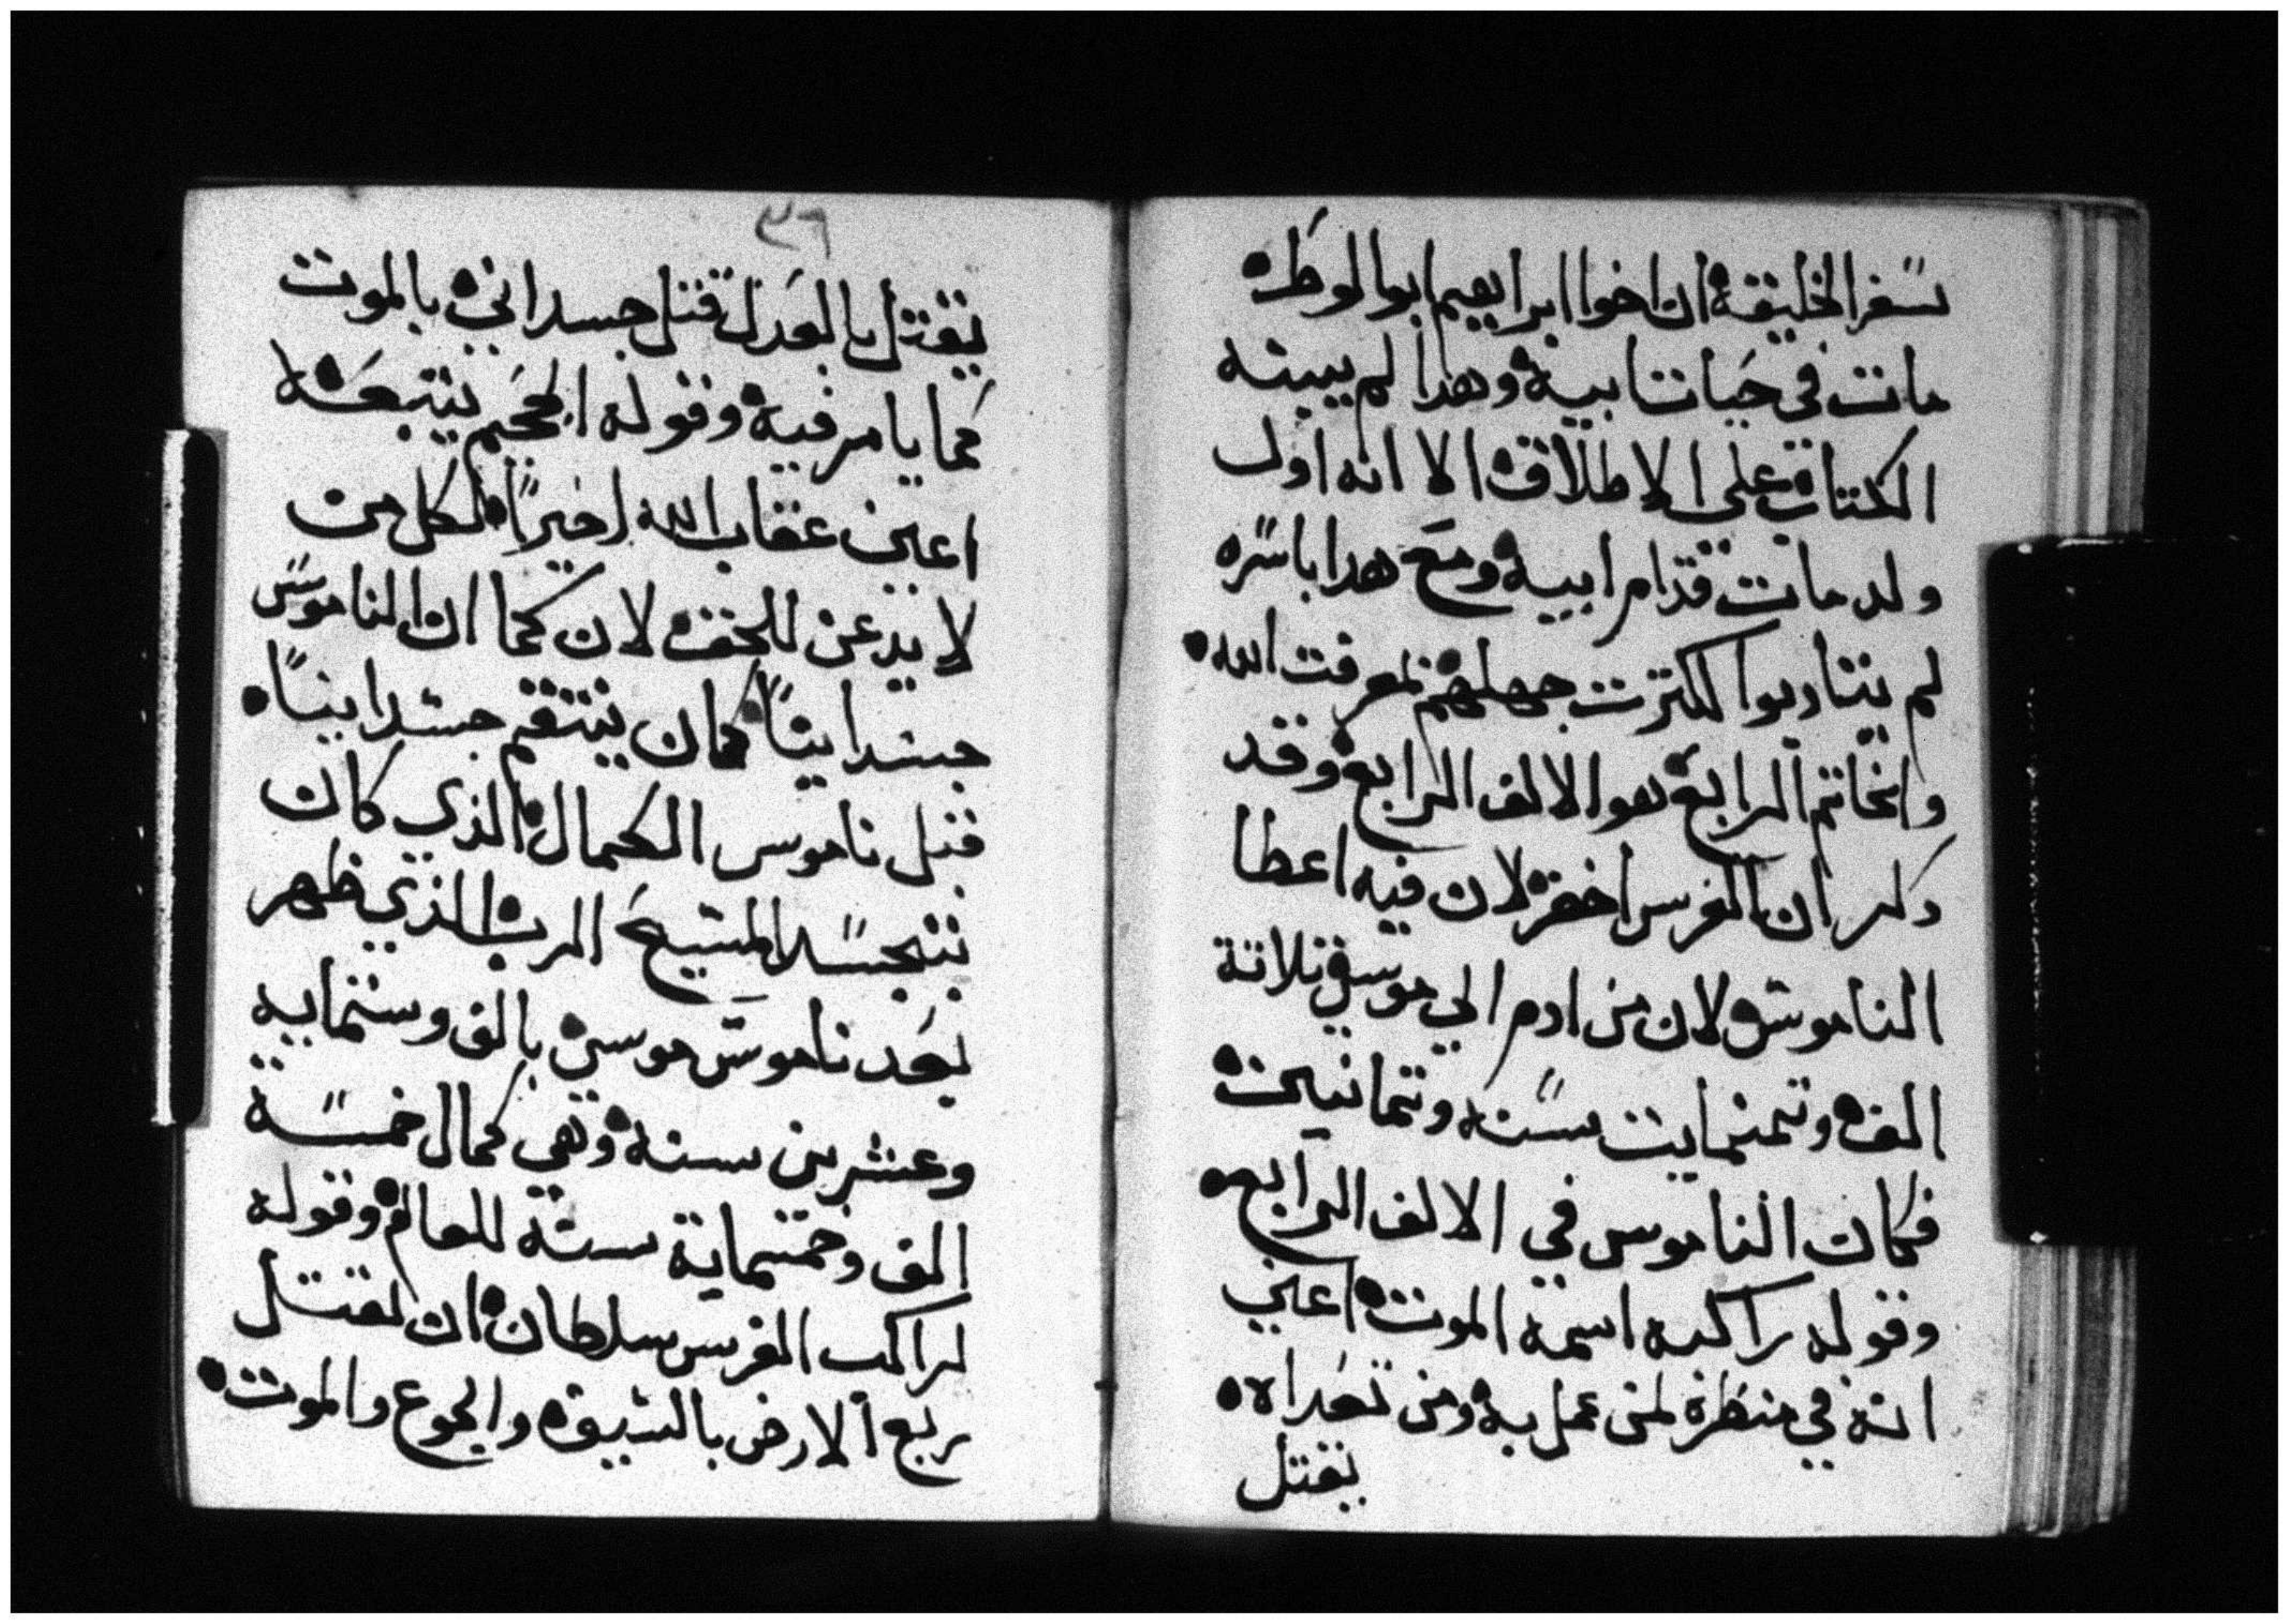 سفر الخليقة ان اخوا ابراهيم ابوا لوط
مات في حيات ابيه وهدا لم يبينه
الكتاب علي الاطلاق الا انه اول
ولد مات قدام ابيه ومع هدا باسره
لم يتادبوا لكترت جهلهم لمعرفت الله
والخاتم الرابع هو الالف الرابع وقد
دكر ان الفرس اخضر لان فيه اعطا
الناموس لان من ادم الي موسي تلاتة
الف وتمنمايت سنه وتمانين
فكان الناموس في الالف الرابع
وقوله راكبه اسمه الموت اعني
انه في منظره لمن عمل به ومن تعداه
يقتل
٣٦
يقتل بالعدل قتل جسداني بالموت
كما يامر فيه وقوله الجحيم يتبعه
اعني عقاب الله اخيرًا لكل من
لا يدعن للحق لان كما ان الناموس
جسدانيًا كان ينتقم جسدانيًا
قبل ناموس الكمال الذي كان
بتجسد المسيح الرب الذي ظهر
بعد ناموس موسي بالف وستمايه
وعشرين سنه وهي كمال خمسة
الف وخمسماية سنة للعالم وقوله
لراكب الفرس سلطان ان يقتل
ربع الارض بالسيف والجوع والموت